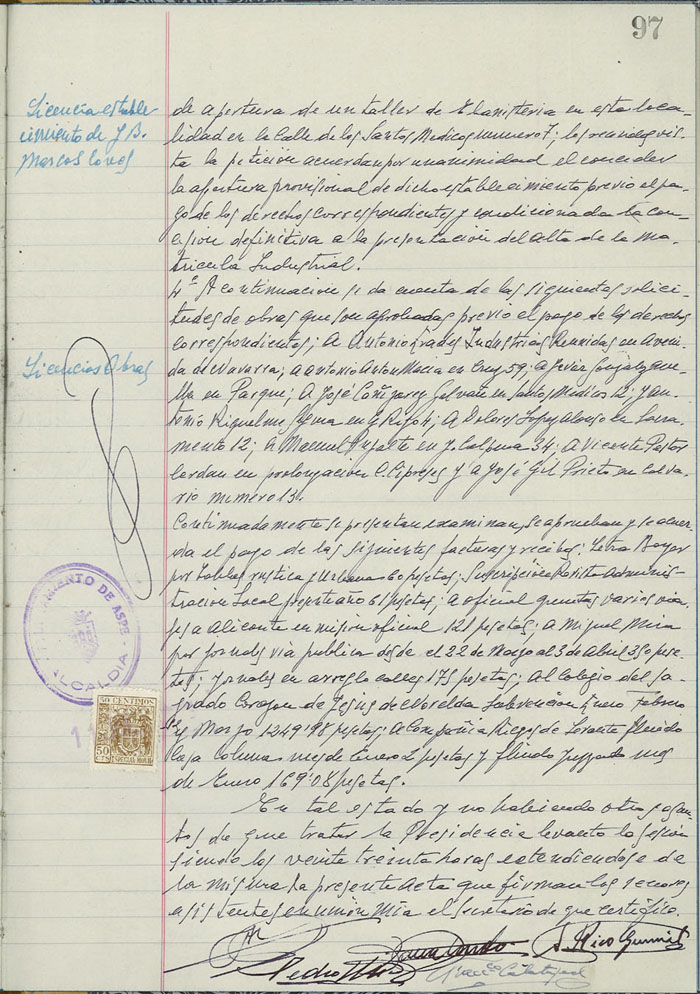 97
Licencia estable
cimiento de J B.
Marcos
de apertura de un taller de Ebanisteria en esta loca
lidad en la Calle de los Santos Medicos numero 7; los reunidos vis
ta la petición acuerdan por unanimidad el conceder
la apertura provisional de dicho establecimiento previo el pa
go de los derechos correspondientes y condicionada la con
cesion definitiva a la presentación del alta de la Ma
tricula Industrial.
4º A continuacion se da cuenta de las siguientes solici
tudes de obras que son aprobadas previo el pago de los derechos
correspondientes; A Antonio Prades Industrias Reunidas en Aveni
Licencias Obras
da de Navarra; a Antonio Anton Macia en Cruz 59; a Javier
en Parque; A José Cañizares Galvañ en Santos Medicos 12; y An
tonio Riquelme en G Rizo 4; A Dolores Lopez Alonso en Sacra
mento 12; a Manuel en J. Calpena 34; a Vicente Pastor
Cerdan en prolongacion C. Cipreses y a José Gil Prieto en Calva
rio numero 13.
Continuadamente se presentan examinan, se aprueban y se acuer
da el pago de las siguientes facturas y recibos: Letra Bayer
por rustica y urbana 60 pesetas; Suscripción Revista Adminis
tracion Local presente año 61 pesetas; a oficial quintas varios via
jes a Alicante en mision oficial 121 pesetas; a Miguel Mira
por jornales via publica desde el 22 de Marzo al 3 de Abril 350 pese
tas; jornales en arreglo calles 175 pesetas; al Colegio del Sa
grado Corazon de Jesus de Novelda Subvencion Enero Febrero
y Marzo 1249'98 pesetas; a Compañia Riegos de Levante fluido
baja columna mes de Enero 2 pesetas y fluido Juzgado mes
de Enero 169'08 pesetas.
AYUNTAMIENTO DE ASPE
ALCALDIA
50 CENTIMOS
50 CTS
ESPECIAL MOVIL
En tal estado y no habiendo otros asun
tos de que tratar la Presidencia levanto la sesion
siendo las veinte treinta horas extendiendose de
la misma la presente acta que firman los señores
asistentes en unión mia el secretario de que certifico.
Pedro
A. Rico